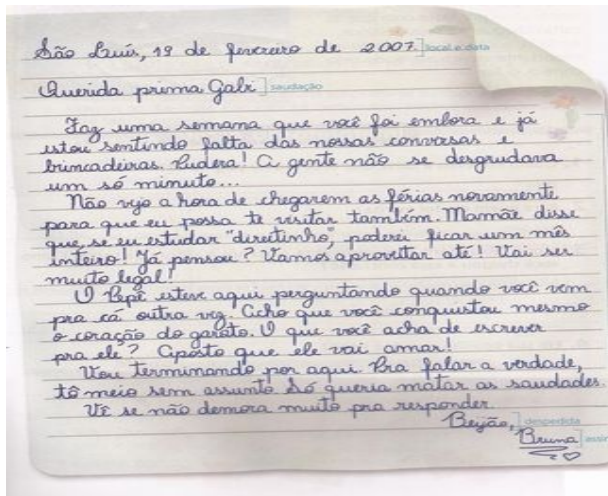 São Luís, 19 de fevereiro de 2007. local e data
Querida prima Gabi saudação
Faz uma semana que você foi embora e já
estou sentindo falta das nossas conversas e
brincadeiras. Pudera! A gente não se desgrudava
um só minuto...
Não vejo a hora de chegarem as férias novamente
para que eu possa te visitar também. Mamãe disse
que, se eu estudar "direitinho", poderei ficar um mês
inteiro! Já pensou? Vamos aproveitar até! Vai ser
muito legal!
O Pepê esteve aqui perguntando quando você vem
pra cá outra vez. Acho que você conquistou mesmo
o coração do garoto. O que você acha de escrever
pra ele? Aposto que ele vai amar!
Vou terminando por aqui. Pra falar a verdade,
tô meio sem assunto. Só queria matar as saudades.
Vê se não demora muito pra responder.
Beijão, despedida
Bruna